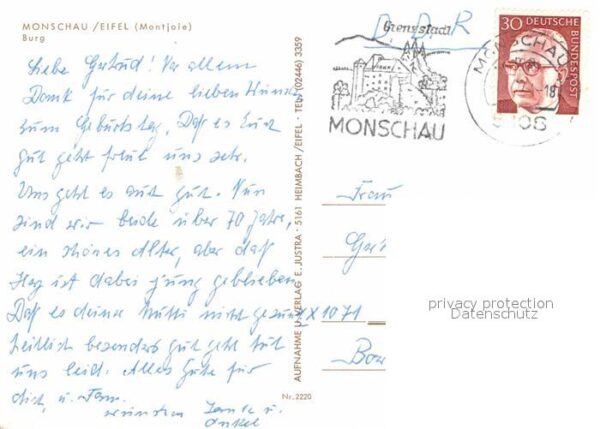 MONSCHAU /EIFEL (Montjoie)
Burg
Liebe Gertrud! Vor allem
Dank für deine lieben Wünsche
zum Geburtstag. Daß es Euch
gut geht freut uns sehr.
Uns geht es auch gut. Nun
sind wir beide über 70 Jahre,
ein schönes Alter, aber daß
Herz ist dabei jung geblieben
Daß es deiner Mutti nicht
besonders gut geht tut
uns leid. Alles Gute für
dich, u. Fam.
wünschen Tante u.
Onkel
AUFNAHME U. VERLAG E. JUSTRA · 5161 HEIMBACH/EIFEL · TEL. (02446) 3359
Nr. 2220
DDR
Grenzstadt
MONSCHAU
30 DEUTSCHE BUNDESPOST
MONSCHAU
-18
5108
Frau
X 1071
privacy protection
Datenschutz